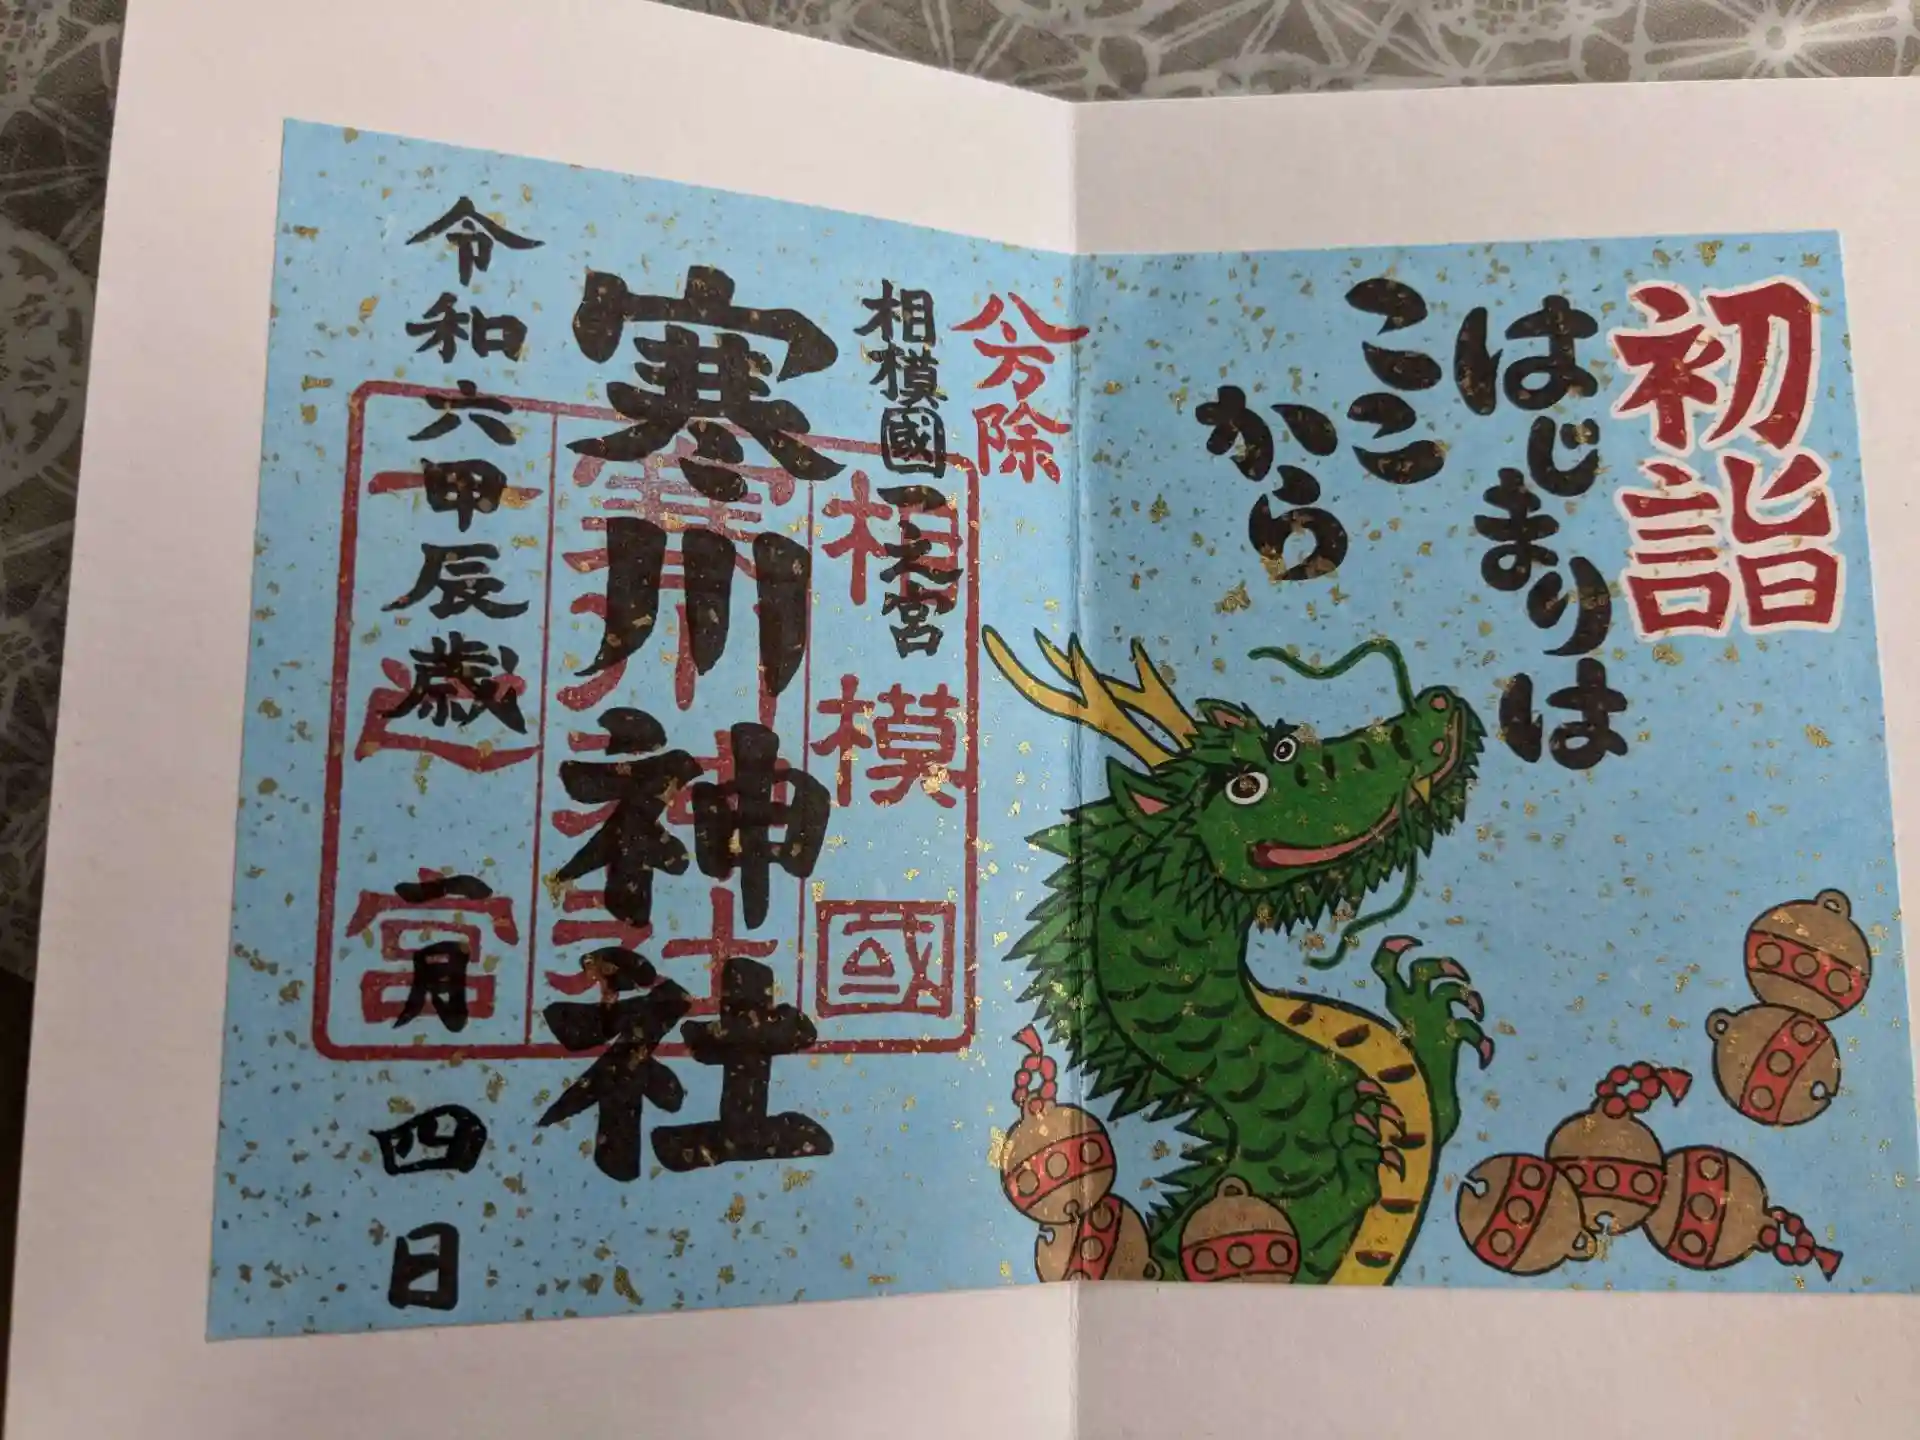 初詣
はじまりは
ここ
から
八方除
相模國一之宮
寒川神社
令和六甲辰歳二月四日
相模國
寒川神社
一之宮